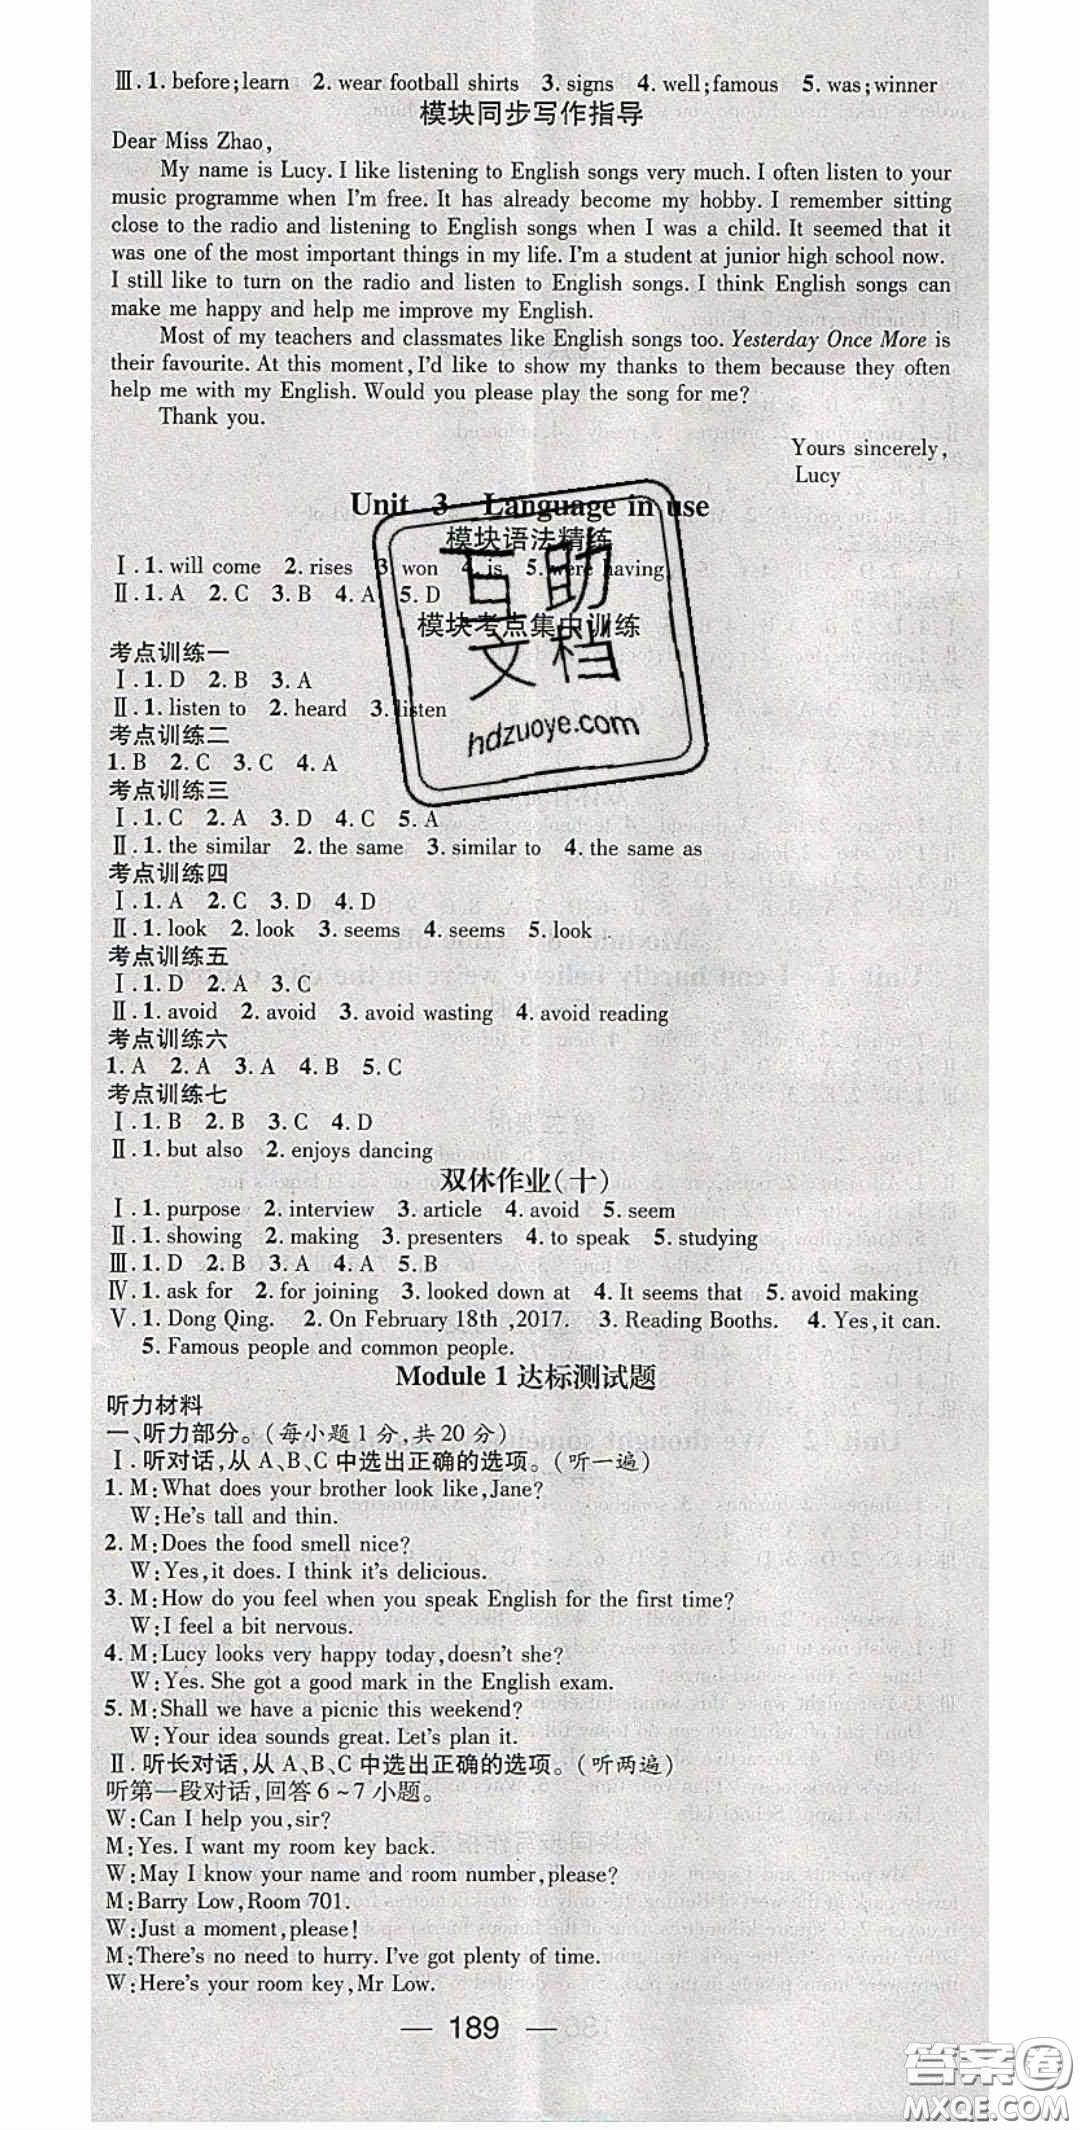 Ⅲ. 1. before;learn 2. wear football shirts 3. signs 4. well;famous 5. was;winner
模块同步写作指导
Dear Miss Zhao,
My name is Lucy. I like listening to English songs very much. I often listen to your
music programme when I'm free. It has already become my hobby. I remember sitting
close to the radio and listening to English songs when I was a child. It seemed that it
was one of the most important things in my life. I'm a student at junior high school now.
I still like to turn on the radio and listen to English songs. I think English songs can
make me happy and help me improve my English.
Most of my teachers and classmates like English songs too. Yesterday Once More is
their favourite. At this moment,I'd like to show my thanks to them because they often
help me with my English. Would you please play the song for me?
Thank you.
Yours sincerely,
Lucy
Unit 3 Language in use
模块语法精练
Ⅰ. 1. will come 2. rises 3. won 4. is 5. were having
Ⅱ. 1. A 2. C 3. B 4. A 5. D
模块考点集中训练
考点训练一
Ⅰ. 1. D 2. B 3. A
Ⅱ. 1. listen to 2. heard 3. listen
考点训练二
1. B 2. C 3. C 4. A
考点训练三
Ⅰ. 1. C 2. A 3. D 4. C 5. A
Ⅱ. 1. the similar 2. the same 3. similar to 4. the same as
考点训练四
Ⅰ. 1. A 2. C 3. D 4. D
Ⅱ. 1. look 2. look 3. seems 4. seems 5. look
考点训练五
Ⅰ. 1. D 2. A 3. C
Ⅱ. 1. avoid 2. avoid 3. avoid wasting 4. avoid reading
考点训练六
1. A 2. A 3. A 4. B 5. C
考点训练七
Ⅰ. 1. B 2. B 3. C 4. D
Ⅱ. 1. but also 2. enjoys dancing
双休作业(十)
Ⅰ. 1. purpose 2. interview 3. article 4. avoid 5. seem
Ⅱ. 1. showing 2. making 3. presenters 4. to speak 5. studying
Ⅲ. 1. D 2. B 3. A 4. A 5. B
Ⅳ. 1. ask for 2. for joining 3. looked down at 4. It seems that 5. avoid making
Ⅴ. 1. Dong Qing. 2. On February 18th ,2017. 3. Reading Booths. 4. Yes,it can.
5. Famous people and common people.
Module 1 达标测试题
听力材料
一、听力部分。(每小题1分,共20分)
Ⅰ. 听对话,从A、B、C中选出正确的选项。(听一遍)
1. M:What does your brother look like,Jane?
W:He's tall and thin.
2. M:Does the food smell nice?
W:Yes,it does. I think it's delicious.
3. M:How do you feel when you speak English for the first time?
W:I feel a bit nervous.
4. M:Lucy looks very happy today,doesn't she?
W:Yes. She got a good mark in the English exam.
5. M:Shall we have a picnic this weekend?
W:Your idea sounds great. Let's plan it.
Ⅱ. 听长对话,从A、B、C中选出正确的选项。(听两遍)
听第一段对话,回答6~7小题。
W:Can I help you,sir?
M:Yes. I want my room key back.
W:May I know your name and room number,please?
M:Barry Low,Room 701.
W:Just a moment,please!
M:There's no need to hurry. I've got plenty of time.
W:Here's your room key,Mr Low.
— 189 —
互助
文档
hdzuoye.com
答案圈
MXQE.COM